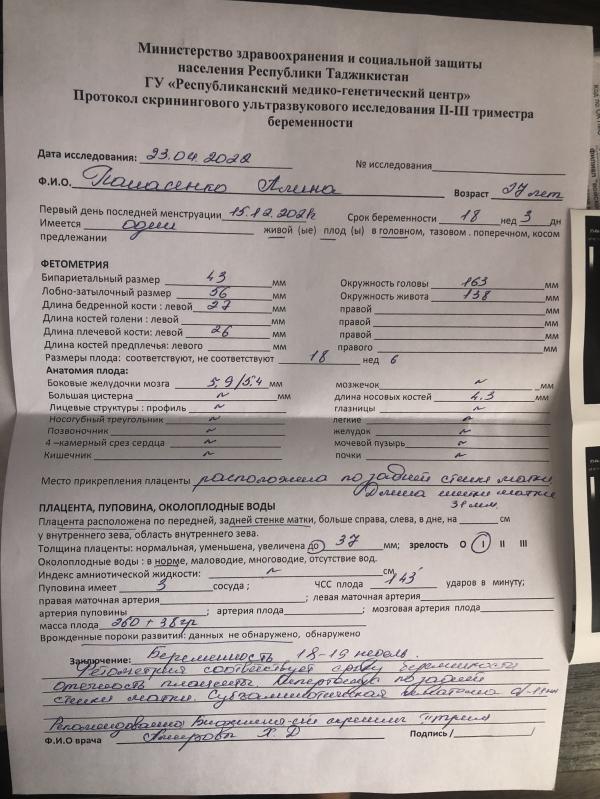 Министерство здравоохранения и социальной защиты
населения Республики Таджикистан
ГУ «Республиканский медико-генетический центр»
Протокол скринингового ультразвукового исследования II-III триместра
беременности
Дата исследования: 23.04.2022 № исследования
Ф.И.О. Алина Возраст 27 лет
Первый день последней менструации 15.12.2021г Срок беременности 18 нед 3 дн
Имеется один живой (ые) плод (ы) в головном, тазовом . поперечном, косом
предлежании
ФЕТОМЕТРИЯ
Бипариетальный размер 43 мм Окружность головы 163 мм
Лобно-затылочный размер 56 мм Окружность живота 138 мм
Длина бедренной кости : левой 27 мм правой мм
Длина костей голени : левой мм правой мм
Длина плечевой кости: левой 26 мм правой мм
Длина костей предплечья: левого мм правого мм
Размеры плода: соответствуют, не соответствуют 18 нед 6
Анатомия плода:
Боковые желудочки мозга 5.9/5.4 мм мозжечок ~ мм
Большая цистерна ~ мм длина носовых костей 4.3 мм
Лицевые структуры : профиль ~ глазницы ~
Носогубный треугольник ~ легкие ~
Позвоночник ~ желудок ~
4 –камерный срез сердца ~ мочевой пузырь ~
Кишечник ~ почки ~
Место прикрепления плаценты расположена по задней стенке матки
Длина шейки матки
мм.
ПЛАЦЕНТА, ПУПОВИНА, ОКОЛОПЛОДНЫЕ ВОДЫ
Плацента расположена по передней, задней стенке матки, больше справа, слева, в дне, на см
у внутреннего зева, область внутреннего зева.
Толщина плаценты: нормальная, уменьшена, увеличена до 37 мм; зрелость О I II III
Околоплодные воды : в норме, маловодие, многоводие, отсутствие вод.
Индекс амниотической жидкости: ~ см
Пуповина имеет 3 сосуда ; ЧСС плода 143 ударов в минуту;
правая маточная артерия ; левая маточная артерия
артерия пуповины ; артерия плода ; мозговая артерия плода
масса плода 260 + 38 гр
Врожденные пороки развития: данных не обнаружено, обнаружено
Заключение: Беременность 18-19 недель.
Фетометрия соответствует сроку беременности
плаценты. по задней
стенки матки.
Рекомендовано скрининг
Ф.И.О врача Х. Д Подпись /